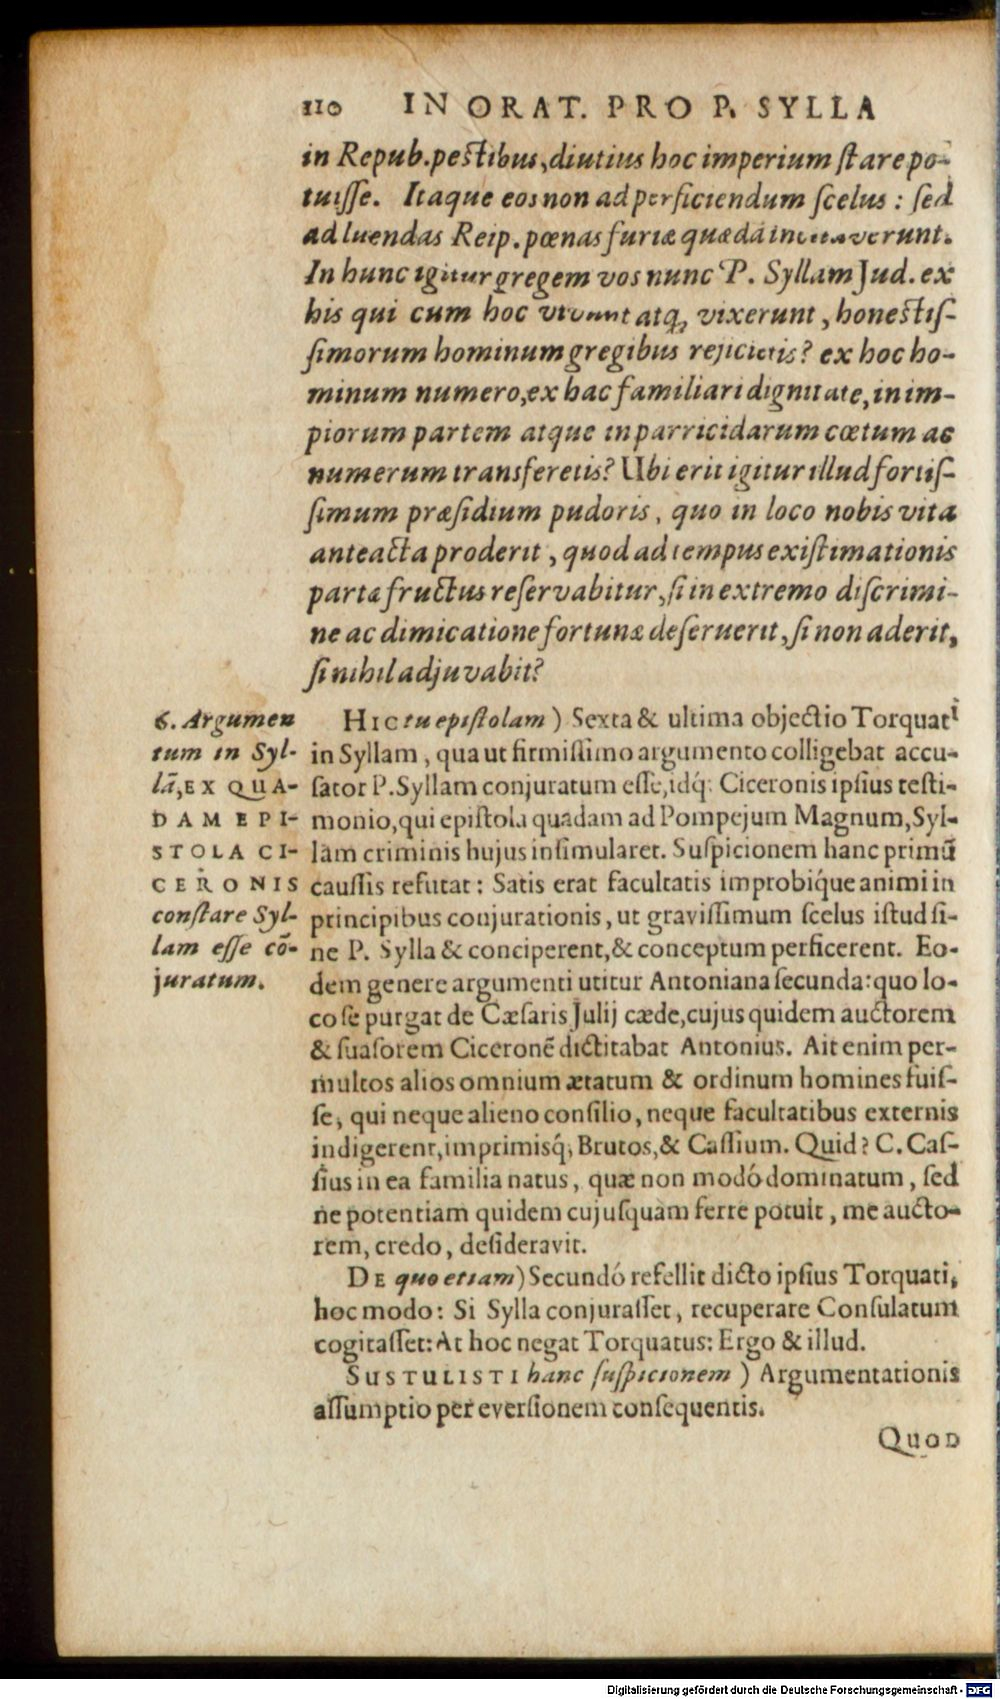 110 IN ORAT. PRO P. SYLLA
in Repub. pestibus, diutius hoc imperium ſtare po-
tuiſſe. Itaque eos non ad perficiendum ſcelus : ſed
ad luendas Reip. pœnas furiæ quædã incitaverunt.
In hunc igitur gregem vos nunc P. Syllam Jud. ex
his qui cum hoc vivunt atq; vixerunt, honestiſ-
ſimorum hominum gregibus rejicietis? ex hoc ho-
minum numero, ex hac familiari dignitate, in im-
piorum partem atque in parricidarum cœtum ac
numerum transferetis? Ubi erit igitur illud fortiſ-
ſimum præſidium pudoris, quo in loco nobis vita
anteacta proderit, quod ad tempus exiſtimationis
parta fructus reſervabitur, ſi in extremo diſcrimi-
ne ac dimicatione fortunæ deſeruerit, ſi non aderit,
ſi nihil adjuvabit?
6. Argumen
tum in Syl-
lã, EX QUA-
DAM EPI-
STOLA CI-
CERONIS
conſtare Syl-
lam eſſe cõ-
juratum.
HIC tu epiſtolam ) Sexta & ultima objectio Torquati
in Syllam, qua ut firmiſſimo argumento colligebat accu-
ſator P. Syllam conjuratum eſſe, idq́; Ciceronis ipſius teſti-
monio, qui epiſtola quadam ad Pompejum Magnum, Syl-
lam criminis hujus inſimularet. Suſpicionem hanc primũ
cauſſis refutat : Satis erat facultatis improbiq́ue animi in
principibus conjurationis, ut graviſſimum ſcelus iſtud ſi-
ne P. Sylla & conciperent, & conceptum perficerent. Eo-
dem genere argumenti utitur Antoniana ſecunda: quo lo-
co ſe purgat de Cæſaris Julij cæde, cujus quidem auctorem
& ſuaſorem Ciceronẽ dictitabat Antonius. Ait enim per-
multos alios omnium ætatum & ordinum homines fuiſ-
ſe, qui neque alieno conſilio, neque facultatibus externis
indigerent, imprimisq́; Brutos, & Caſſium. Quid? C. Caſ-
ſius in ea familia natus, quæ non modó dominatum, ſed
ne potentiam quidem cujuſquam ferre potuit, me aucto-
rem, credo, deſideravit.
DE quo etiam) Secundó refellit dicto ipſius Torquati,
hoc modo: Si Sylla conjuraſſet, recuperare Conſulatum
cogitaſſet: At hoc negat Torquatus: Ergo & illud.
SUSTULISTI hanc ſuſpicionem ) Argumentationis
aſſumptio per everſionem conſequentis.
QUOD
Digitalisierung gefördert durch die Deutsche Forschungsgemeinschaft - DFG